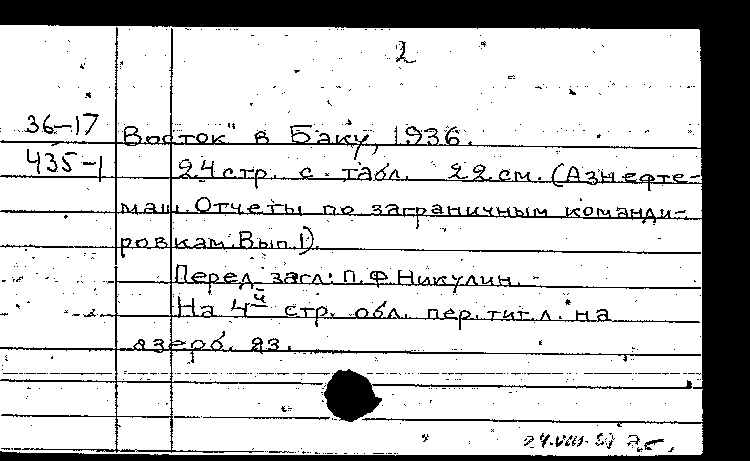 2
36-17
Восток" в Баку, 1936.
435-1
24 стр. с табл. 22 см. (Азнефте-
маш. Отчеты по заграничным команди-
ровкам. Вып. 1).
Перед загл: П. Ф. Никулин.
На 4й стр. обл. пер. тит. л. на
азерб. яз.
24.VIII.